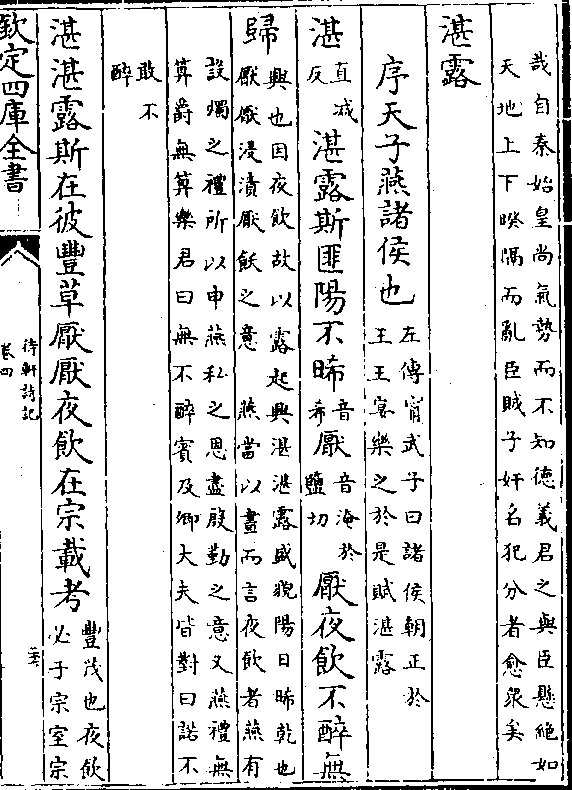 哉自秦始皇尚氣勢而不知德義君之與臣懸絶如
天地上下暌隔而亂臣賊子奸名犯分者愈衆矣
湛露
序天子燕諸侯也
左傳甯武子曰諸侯朝正於
王王宴樂之於是賦湛露
湛
直減
反
湛露斯匪陽不晞
音
希
厭
音淹於
鹽切
厭夜飲不醉無
歸
興也因夜飲故以露起興湛湛露盛貌陽日晞乾也
厭厭浸漬厭飫之意 燕當以晝而言夜飲者燕有
設燭之禮所以申燕私之恩盡殷勤之意又燕禮無
算爵無算樂君曰無不醉賓及卿大夫皆對曰諾不
敢不
醉
湛湛露斯在彼豐草厭厭夜飲在宗載考
豐茂也夜飲
必于宗室宗
欽定四庫全書
待軒詩記
卷四